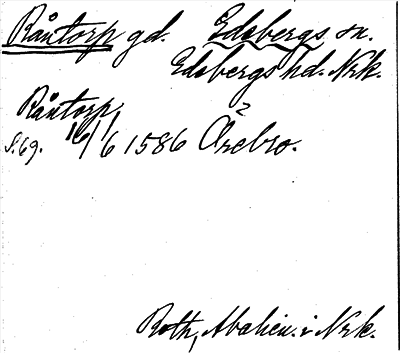 Råntorp gd. Edsbergs sn.
Edsbergs hd. Nrk.
Råntorp
S. 69. 16/6 1586 Örebro.
Roth, Abalien. i Nrk.